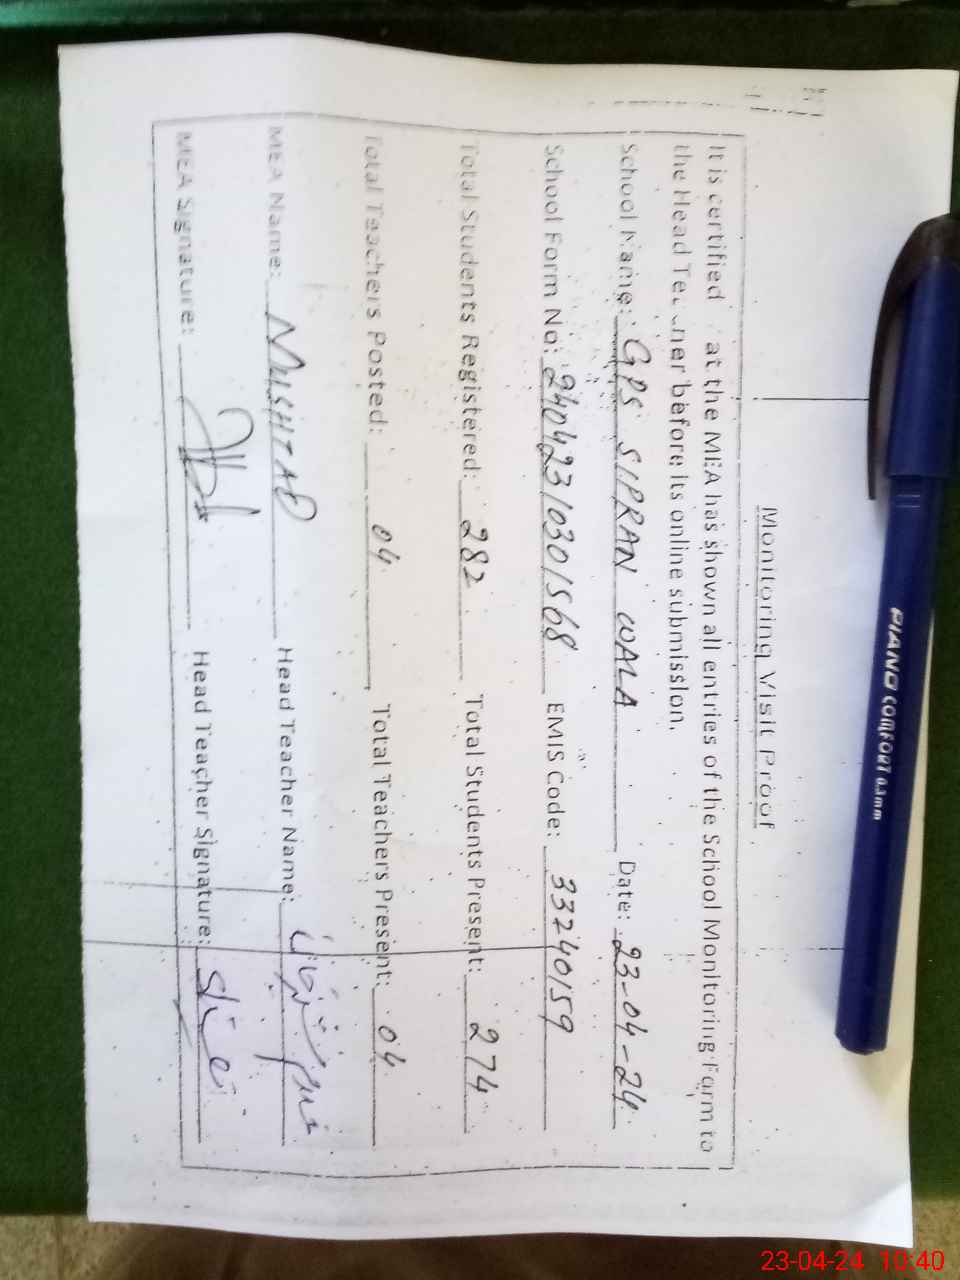 Monitoring Visit Proof
It is certified at the MEA has shown all entries of the School Monitoring Form to
the Head Teacher before its online submission.
School Name: GPS SIPRAN WALA Date: 23-04-24
School Form No: 2404231030 1568 EMIS Code: 33240159
Total Students Registered: 282 Total Students Present: 274
Total Teachers Posted: 04 Total Teachers Present: 04
MEA Name: MUSHTAQ Head Teacher Name:
MEA Signature: Head Teacher Signature:
PIANO COMFORT 0.3mm
23-04-24 10:40